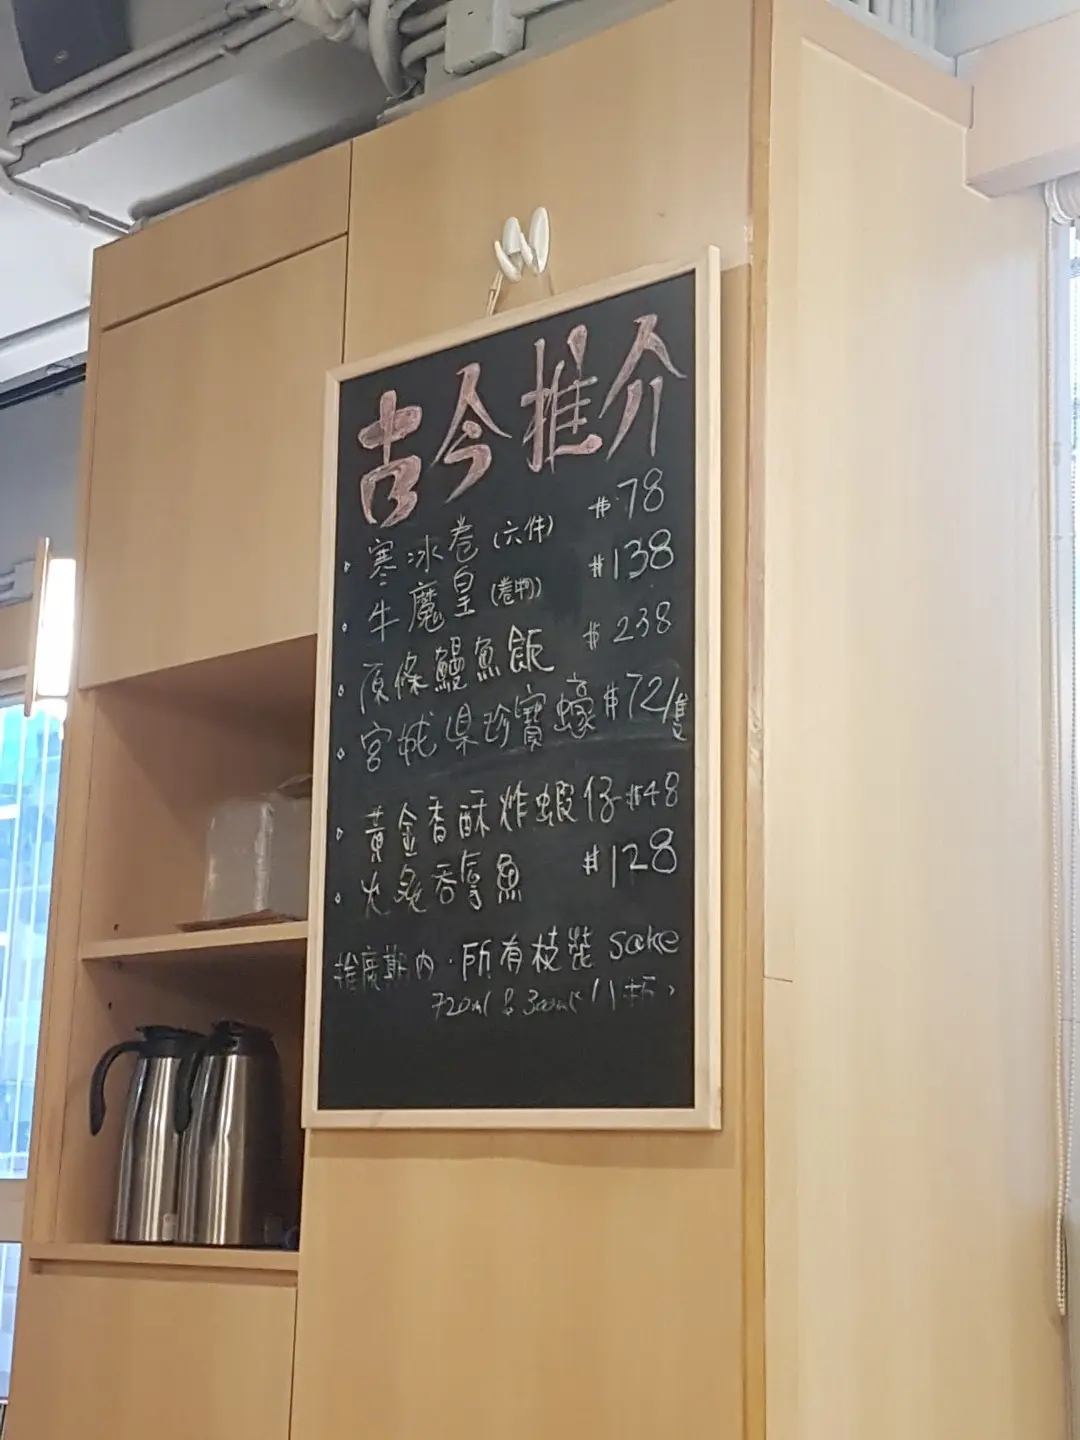 古今推介
· 寒冰卷 (六件) $78
· 牛魔皇 (卷物) $138
· 原條鰻魚飯 $238
· 宮城県珍寶蠔 $72/隻
· 黃金香酥炸蝦仔 $48
· 火炙吞拿魚 $128
推廣期內 · 所有枝裝 Sake
720ml & 300ml